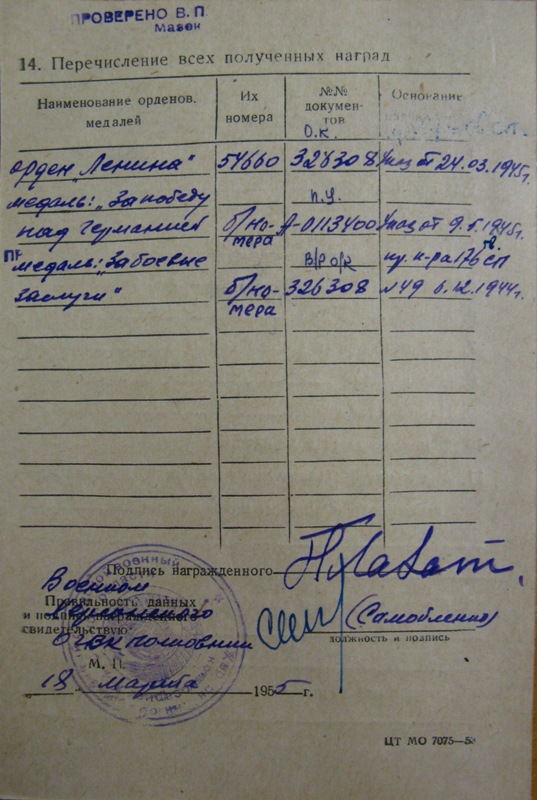 ПРОВЕРЕНО В. П.
14. Перечисление всех полученных наград
Наименование орденов, медалей
Их номера
№№ документов
Основание
о.к.
орден „Ленина" 54660 326308 Указ от 24.03.1945г.
медаль: „За победу п.у.
над Германией б/но- А-0113400 Указ от 9.5.1945г.
мера
медаль: „За боевые в/р о/к пр. к-ра 176 сп
заслуги" б/но- 326308 №49 6.12.1944г.
мера
Подпись награжденного
Военком
Правильность данных
и подпись награжденного
свидетельствую:
полковник
(Самобленко)
должность и подпись
М. П.
18 марта 1955 г.
ЦТ МО 7075—5